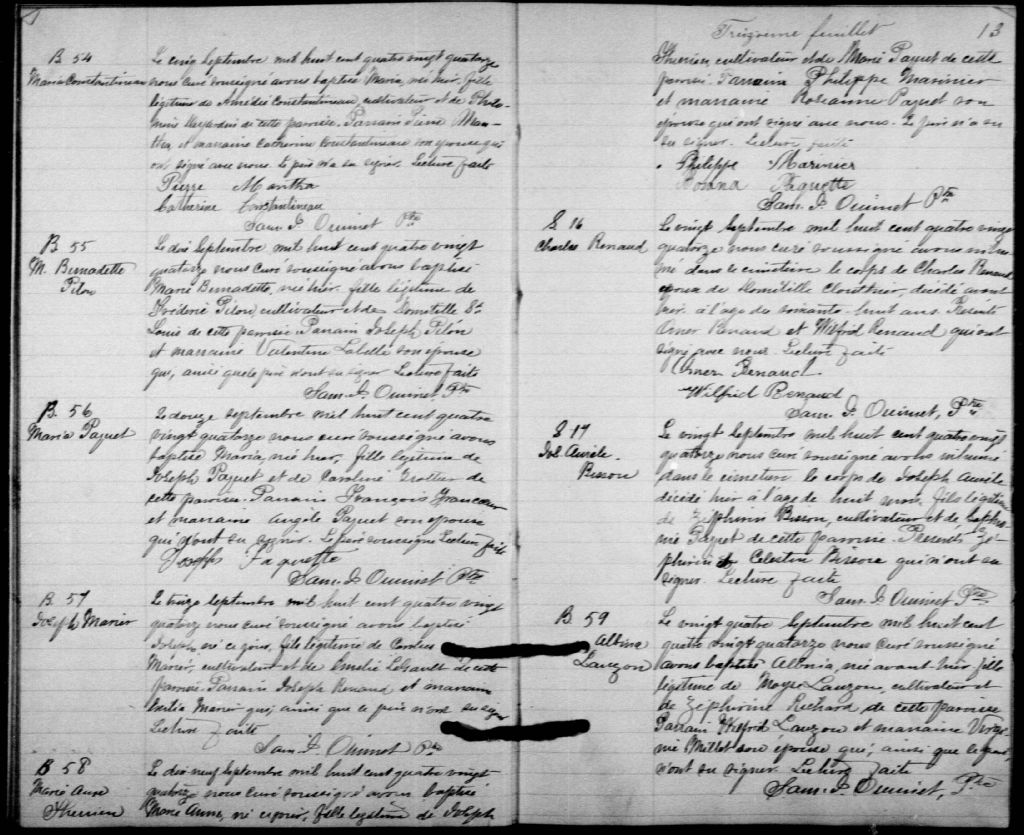 B 54
Maria Constantineau
Le cinq Septembre mil huit cent quatre vingt quatorze
nous curé soussigné avons baptisé Maria, née hier, fille
légitime de Amédée Constantineau, cultivateur et de Philo-
mène Desjardins de cette paroisse. Parrain Pierre Man-
tha, et marraine Catherine Constantineau son épouse qui
ont signé avec nous. Le père n'a su signer. Lecture faite
Pierre Mantha
Catherine Constantineau
Sam. J. Ouimet Ptre
B 55
M. Bernadette
Pilon
Le dix Septembre mil huit cent quatre vingt
quatorze nous curé soussigné avons baptisé
Marie Bernadette, née hier, fille légitime de
Frédéric Pilon, cultivateur et de Domitille St
Louis de cette paroisse. Parrain Joseph Pilon
et marraine Valentine Labelle son épouse
qui, ainsi que le père n'ont su signer Lecture faite
Sam. J. Ouimet, Ptre
B. 56
Maria Paquet
Le douze septembre mil huit cent quatre
vingt quatorze nous curé soussigné avons
baptisé Maria, née hier, fille légitime de
Joseph Paquet et de Caroline Trottier de
cette paroisse. Parrain François Francoeur
et marraine Angèle Paquet son épouse
qui n'ont su signer. Le père soussigné Lecture faite
Joseph Paquette
Sam. J. Ouimet Ptre
B. 57
Joseph Marier
Le treize septembre mil huit cent quatre vingt
quatorze nous curé soussigné avons baptisé
Joseph, né ce jour, fils légitime de
Marier, cultivateur et de Emélie Legault de cette
paroisse. Parrain Joseph Renaud et marraine
Emélia Marier qui, ainsi que le père n'ont su signer
Lecture faite
Sam. J. Ouimet Ptre
B 58
Marie Anne
Therrien
Le dix neuf Septembre mil huit cent quatre vingt
quatorze nous curé soussigné avons baptisé
Marie Anne, née ce jour, fille légitime de Joseph
Treizième feuillet 13
Therrien, cultivateur et de Marie Paquet de cette
paroisse. Parrain Philippe Marinier
et marraine Roseanne Paquet son
épouse qui ont signé avec nous. Le père n'a su
su signer. Lecture faite
Philippe Marinier
Rosana Paquette
Sam. J. Ouimet Ptre
S 16
Charles Renaud
Le vingt Septembre mil huit cent quatre vingt
quatorze nous curé soussigné avons inhu-
mé dans le cimetière le corps de Charles Renaud
époux de Domitille Clouthier, décédé avant
hier, à l'age de soixante-huit ans. Présents
Omer Renaud et Wilfrid Renaud qui ont
signé avec nous. Lecture faite
Omer Renaud
Wilfrid Renaud
Sam. J. Ouimet, Ptre
S 17
Jos. Aurèle
Bisson
Le vingt Septembre mil huit cent quatre vingt
quatorze nous curé soussigné avons inhumé
dans le cimetière le corps de Joseph Aurèle
décédé hier à l'age de huit mois, fils légitime
de Zéphirin Bisson, cultivateur et de
Paquet de cette paroisse. Présents Zé-
phirin et Celestin Bisson qui n'ont su
signer. Lecture faite
Sam. J. Ouimet Ptre
B. 59
Albina
Lauzon
Le vingt quatre Septembre mil huit cent
quatre vingt quatorze nous curé soussigné
avons baptisé Albina, née avant hier, fille
légitime de Moyse Lauzon, cultivateur et
de Zéphirine Richard de cette paroisse
Parrain Wilfrid Lauzon et marraine Virgi-
nie Millet son épouse qui, ainsi que le père,
n'ont su signer. Lecture faite
Sam. J. Ouimet, Ptre